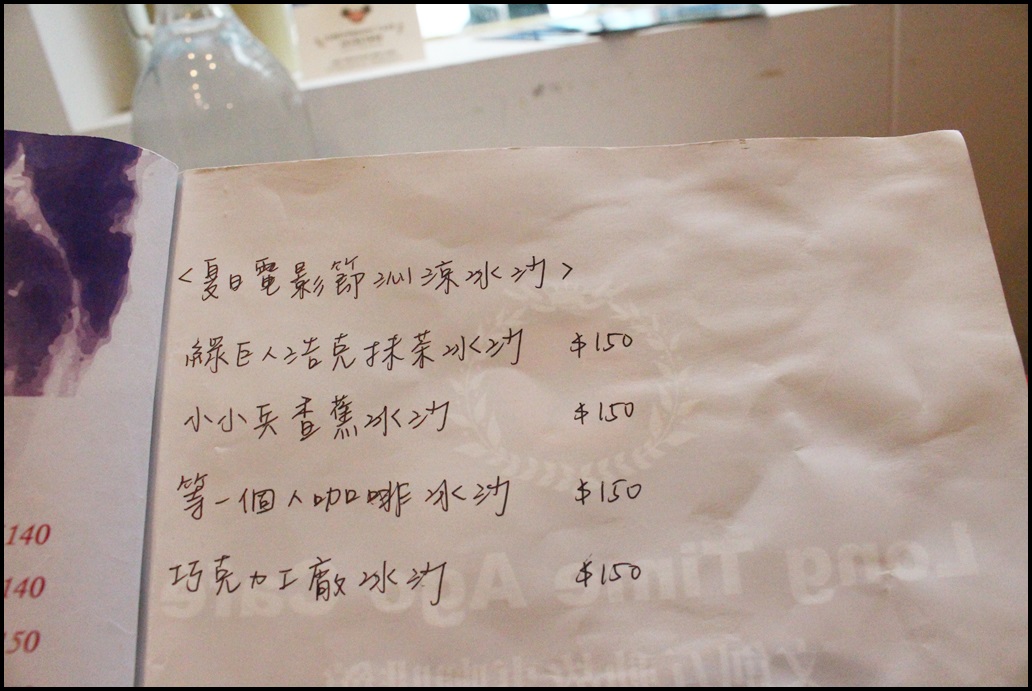 <夏日電影節沁涼冰沙>
綠巨人浩克抹茶冰沙 $150
小小兵香蕉冰沙 $150
等一個人咖啡冰沙 $150
巧克力工廠冰沙 $150
140
140
150
Long Time Ago Cafe